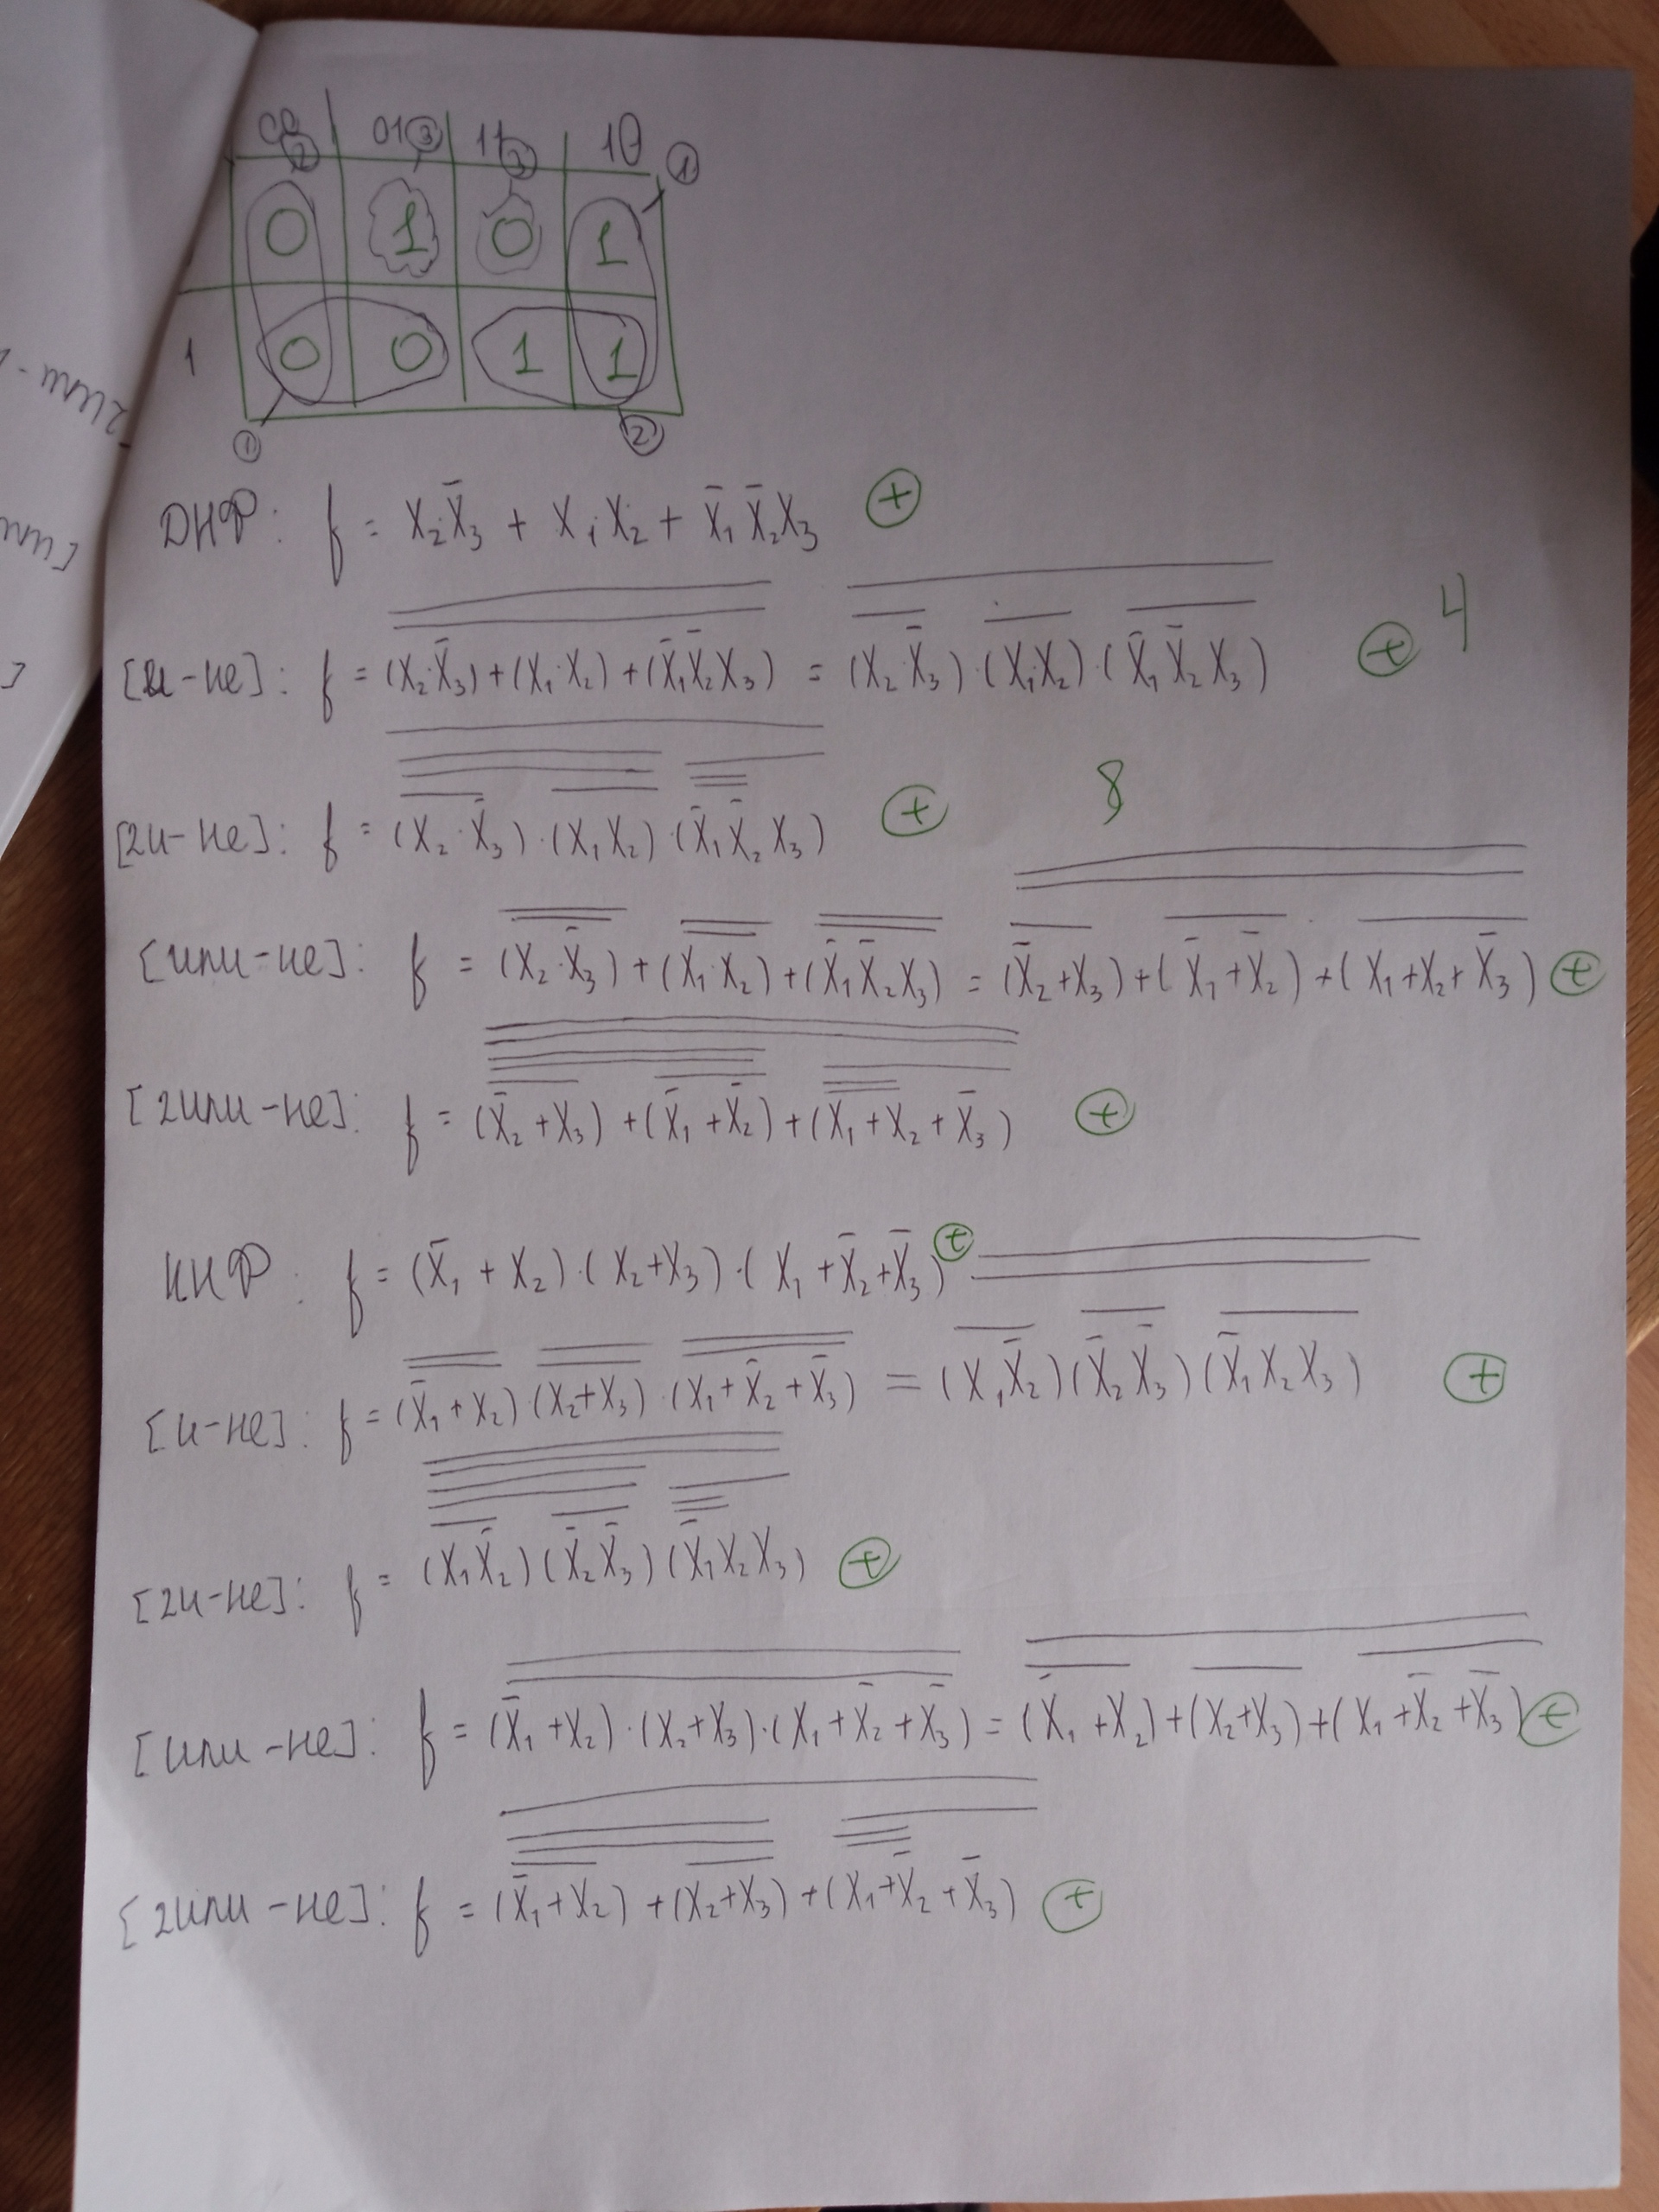 00 01 ③ 11 10 ①
② ③
0 1 0 1
1 0 0 1 1
① ②
ДНФ: f = X₂X̄₃ + X₁X₂ + X̄₁X̄₂X₃ ⊕
[и-не]: f = (X₂·X̄₃)+(X₁·X₂)+(X̄₁X̄₂X₃) = (X₂·X̄₃)·(X₁X₂)·(X̄₁X̄₂X₃) ⊕ 4
[2и-не]: f = (X₂·X̄₃)·(X₁X₂)·(X̄₁X̄₂X₃) ⊕ 8
[или-не]: f = (X₂·X̄₃)+(X₁·X₂)+(X̄₁X̄₂X₃) = (X̄₂+X₃)+(X̄₁+X̄₂)+(X₁+X₂+X̄₃) ⊕
[2или-не]: f = (X̄₂+X₃)+(X̄₁+X̄₂)+(X₁+X₂+X̄₃) ⊕
КНФ: f = (X̄₁+X₂)·(X₂+X₃)·(X₁+X̄₂+X̄₃) ⊕
[и-не]: f = (X̄₁+X₂)·(X₂+X₃)·(X₁+X̄₂+X̄₃) = (X₁X̄₂)(X̄₂X̄₃)(X̄₁X₂X₃) ⊕
[2и-не]: f = (X₁X̄₂)(X̄₂X̄₃)(X̄₁X₂X₃) ⊕
[или-не]: f = (X̄₁+X₂)·(X₂+X₃)·(X₁+X̄₂+X̄₃) = (X̄₁+X₂)+(X₂+X₃)+(X₁+X̄₂+X̄₃) ⊕
[2или-не]: f = (X̄₁+X₂)+(X₂+X₃)+(X₁+X̄₂+X̄₃) ⊕
[2или-
[или